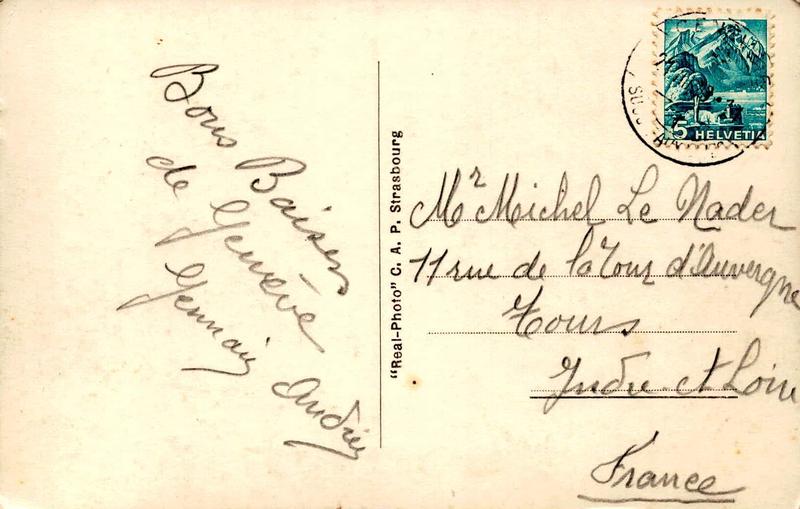 Bons Baisers
de Genève
Germain Andrée
"Real-Photo" C. A. P. Strasbourg
5 HELVETIA
Mr Michel Le Nader
11 rue de la Tour d'Auvergne
Tours
Indre et Loire
France